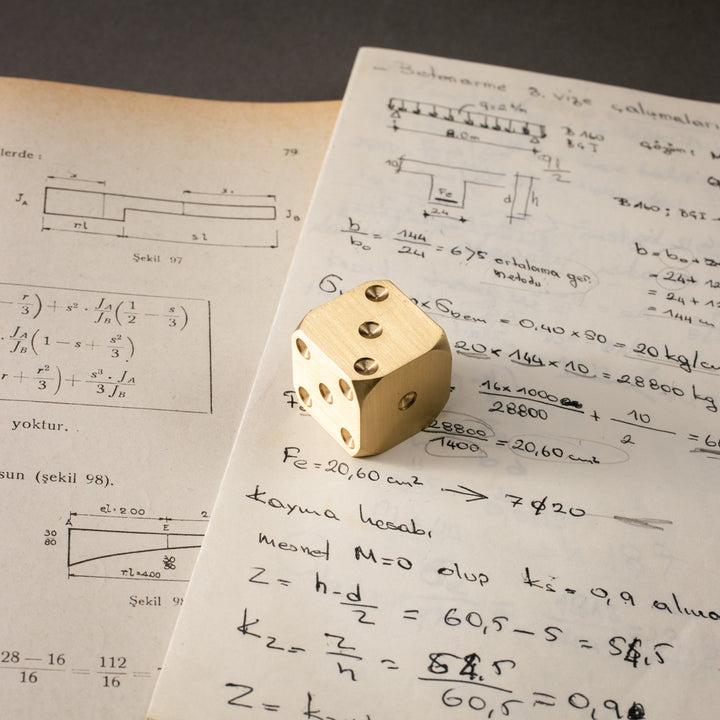 lerde :
79
J_A
J_B
r.l
s.l
Şekil 97
r/3) + s² · J_A/J_B (1/2 − s/3)
· J_A/J_B (1 − s + s²/3)
r + r²/3) + s³/3 · J_A/J_B
yoktur.
sun (şekil 98).
el = 2.00
2
A
E
30
80
r.l = 4.00
Şekil 9
28 − 16/16 = 112/16 =
- Betonarme 2. vize çalışmaları
q = 2 t/m
8.0m
B 160
BÇ I
Çözüm:
ql/2
10
Fe
24
d
h
B160 ; BÇI
b/b₀ = 144/24 = 6
ortalama ger.
metodu
b = b₀ +
= 24 + 12
= 24 + 12
= 144 cm
x σbem = 0,40 x 50 = 20 kg/c
20 x 144 x 10 = 28800 kg
16 x 1000/28800 + 10/2 =
28800/1400 = 20,60 cm²
Fe = 20,60 cm² → 7 ϕ 20
Kayma hesabı
mesnet M=0 olup = 0,9
Z = h - d/2 = 60,5 - 5 =
K_Z = Z/h = /60,5 = 0,9
Z =